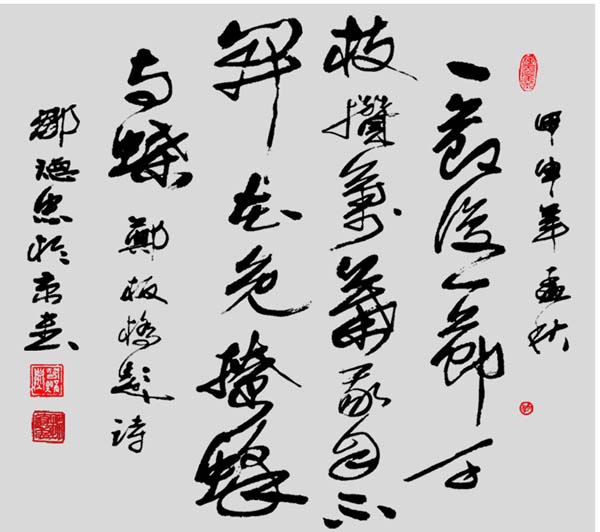 甲申年孟秋
一節復一節千
枝攢萬葉我自不
開花免撩蜂
与蝶
鄭板橋題詩
德忠於京